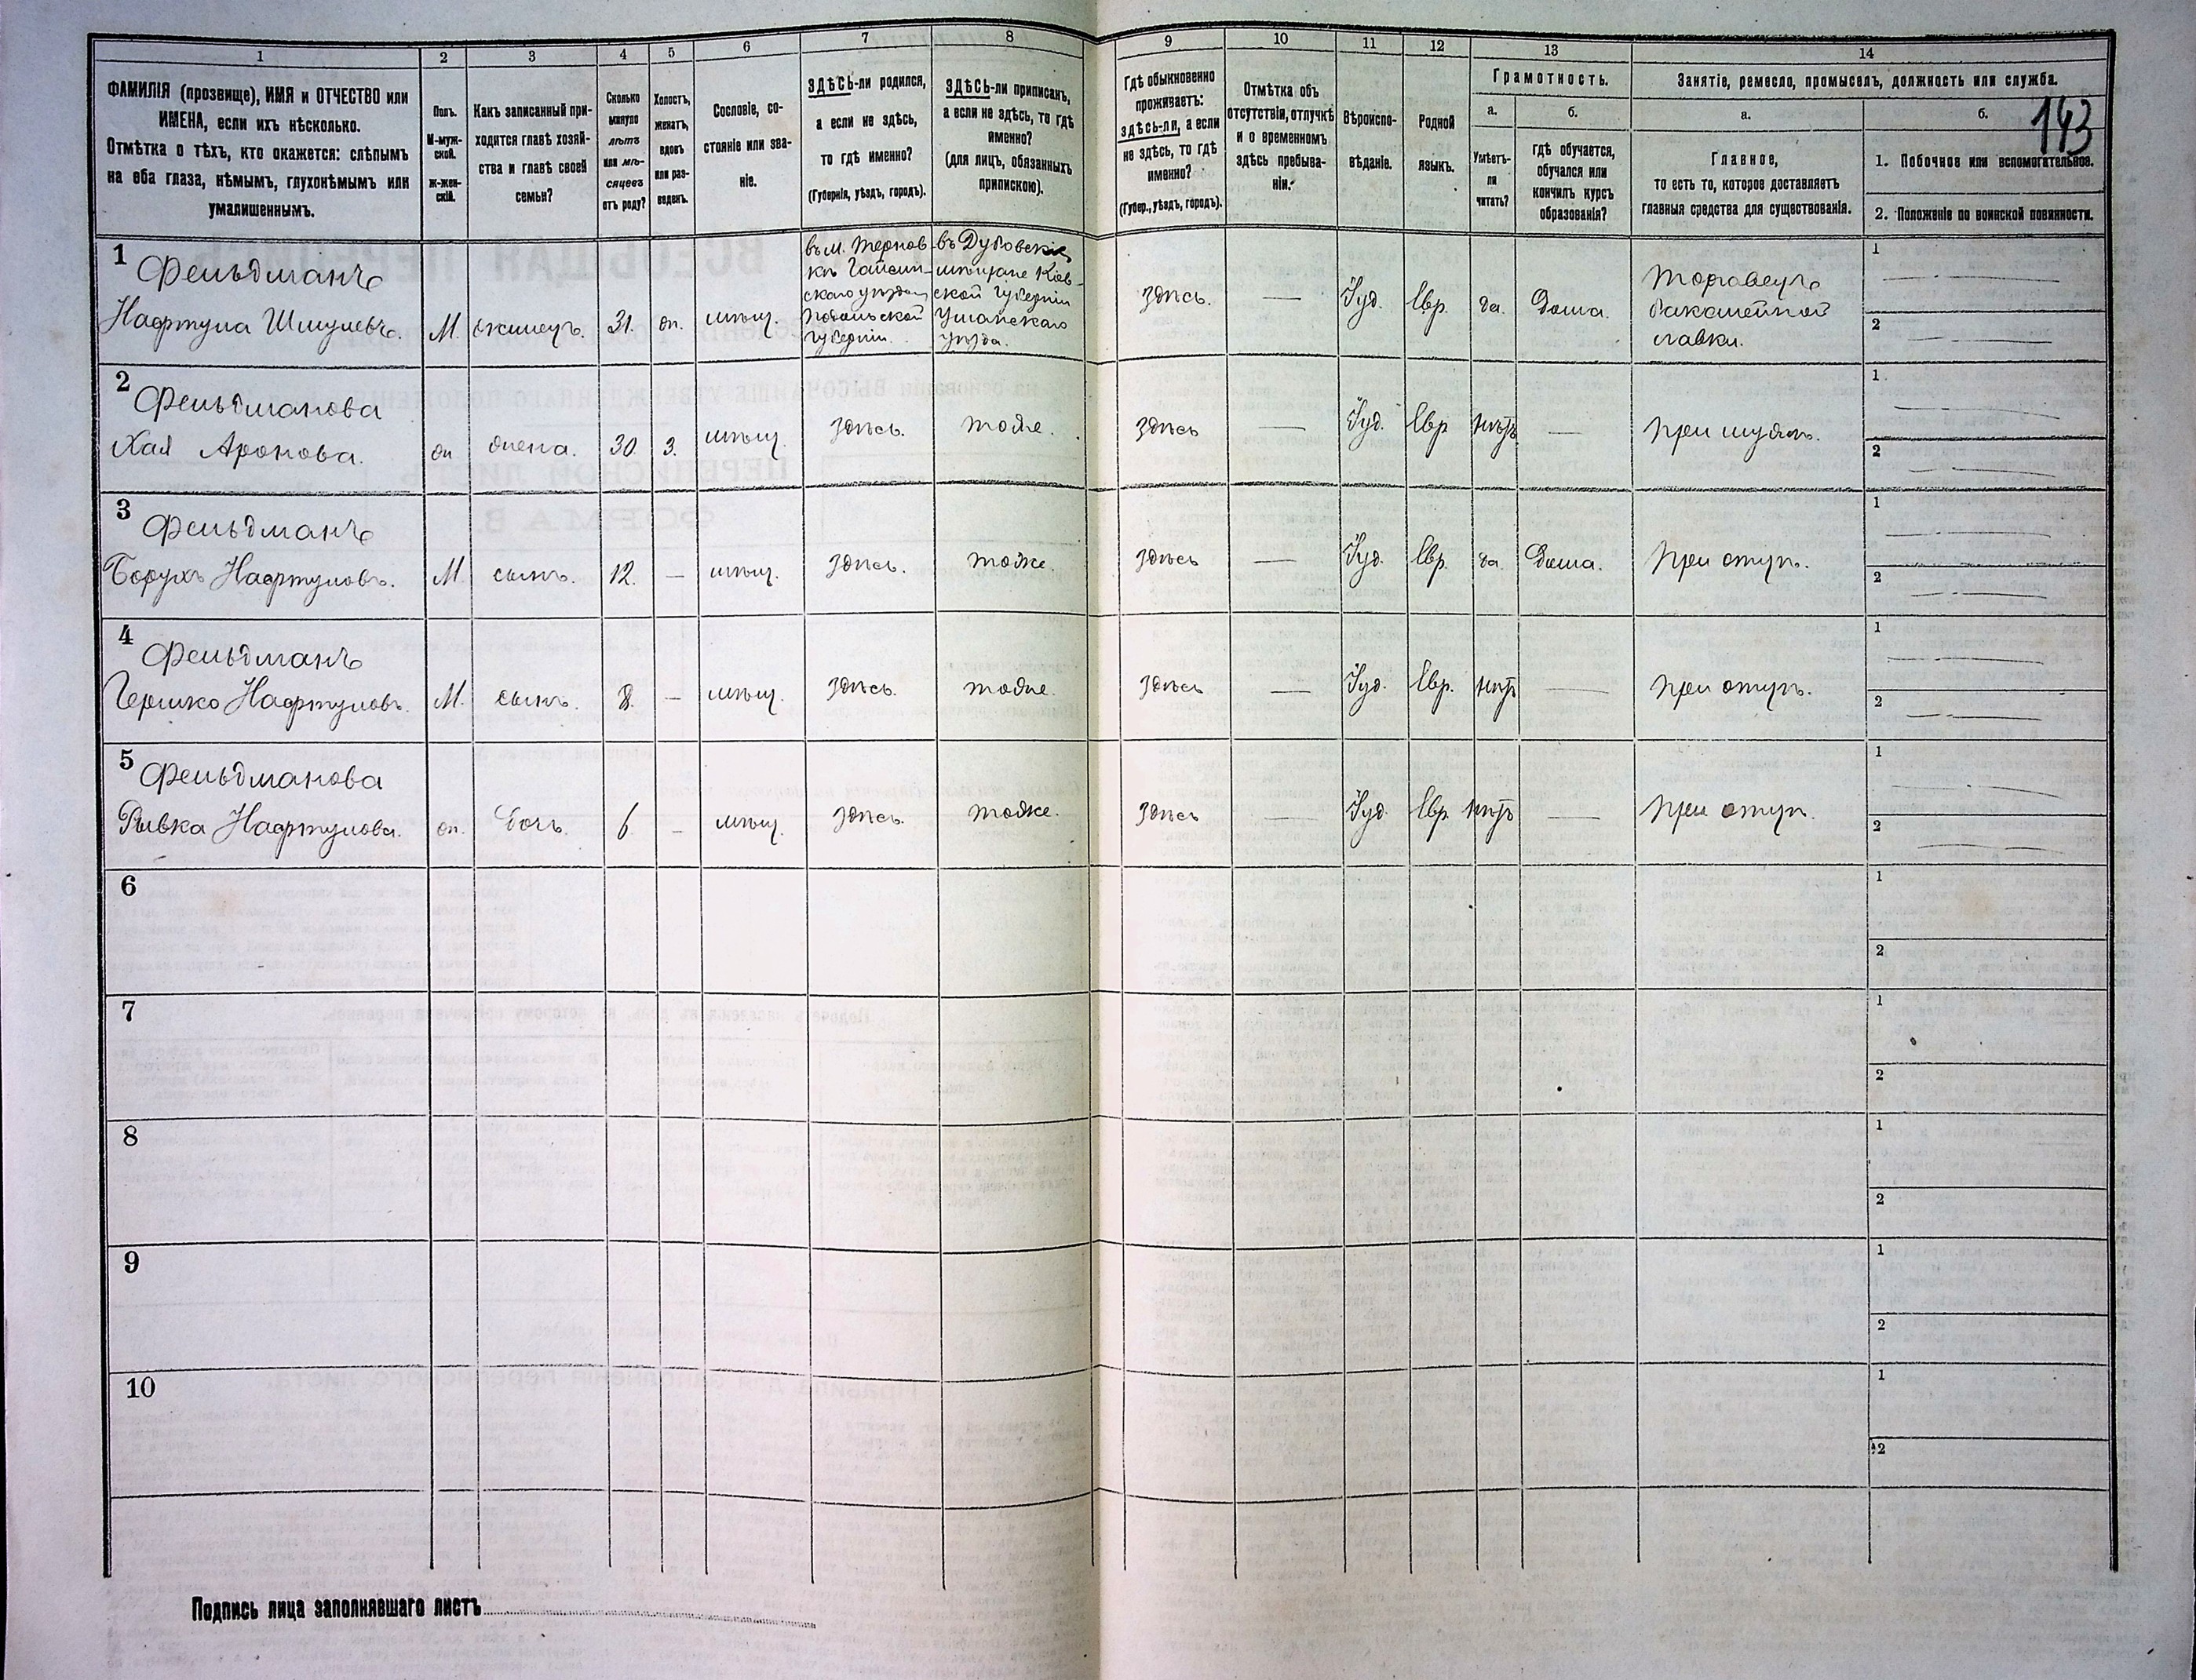 1
2
3
4
5
6
7
8
9
10
11
12
13
14
ФАМИЛІЯ (прозвище), ИМЯ и ОТЧЕСТВО или
ИМЕНА, если ихъ нѣсколько.
Отмѣтка о тѣхъ, кто окажется: слѣпымъ
на оба глаза, нѣмымъ, глухонѣмымъ или
умалишеннымъ.
Полъ.
М-муж-
ской.
ж-жен-
скій.
Какъ записанный при-
ходится главѣ хозяй-
ства и главѣ своей
семьи?
Сколько
минуло
лѣтъ
или мѣ-
сяцевъ
отъ роду?
Холостъ,
женатъ,
вдовъ
или раз-
веденъ.
Сословіе, со-
стояніе или зва-
ніе.
ЗДѢСЬ-ли родился,
а если не здѣсь,
то гдѣ именно?
(Губернія, уѣздъ, городъ).
ЗДѢСЬ-ли приписанъ,
а если не здѣсь, то гдѣ
именно?
(для лицъ, обязанныхъ
припискою).
Гдѣ обыкновенно
проживаетъ:
здѣсь-ли, а если
не здѣсь, то гдѣ
именно?
(Губер., уѣздъ, городъ).
Отмѣтка объ
отсутствіи, отлучкѣ
и о временномъ
здѣсь пребыва-
ніи.
Вѣроиспо-
вѣданіе.
Родной
языкъ.
Грамотность.
а.
Умѣетъ-
ли
читать?
б.
гдѣ обучается,
обучался или
кончилъ курсъ
образованія?
Занятіе, ремесло, промыселъ, должность или служба.
а.
Главное,
то есть то, которое доставляетъ
главныя средства для существованія.
б.
143
1. Побочное или вспомогательное.
2. Положеніе по воинской повинности.
1
Фельдманъ
Нафтула Шмулевъ.
М.
хозяинъ.
31.
ж.
мѣщ.
въ м. Тернов-
кѣ Гайсин-
скаго уѣзда
Подольской
губерніи.
въ Дубовскіе
мѣщане Кіев-
ской губерніи
Уманскаго
уѣзда.
здѣсь.
—
Іуд.
Евр.
да.
Дома.
Торговецъ
бакалейной
лавки.
1
2
2
Фельдманова
Хая Аронова.
ж
жена.
30
З.
мѣщ.
здѣсь.
тоже.
здѣсь
—
Іуд.
Евр
нѣтъ
—
при мужѣ.
1
2
3
Фельдманъ
Борухъ Нафтуловъ.
М.
сынъ.
12.
—
мѣщ.
здѣсь.
тоже.
здѣсь
—
Іуд.
Евр.
да.
Дома.
при отцѣ.
1
2
4
Фельдманъ
Гершко Нафтуловъ.
М.
сынъ.
8.
—
мѣщ.
здѣсь.
тоже.
здѣсь
—
Іуд.
Евр.
нѣтъ
—
при отцѣ.
1
2
5
Фельдманова
Рывка Нафтулова.
ж.
дочь.
6
—
мѣщ.
здѣсь.
тоже.
здѣсь
—
Іуд.
Евр.
нѣтъ
—
при отцѣ.
1
2
6
1
2
7
1
2
8
1
2
9
1
2
10
1
2
Подпись лица заполнявшаго листъ